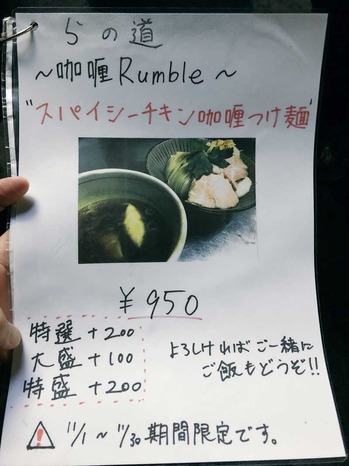 らの道
～咖喱Rumble～
"スパイシーチキン咖喱つけ麺"
¥950
特選+200
大盛+100
特盛+200
よろしければご一緒に
ご飯もどうぞ!!
11/1～11/30期間限定です。